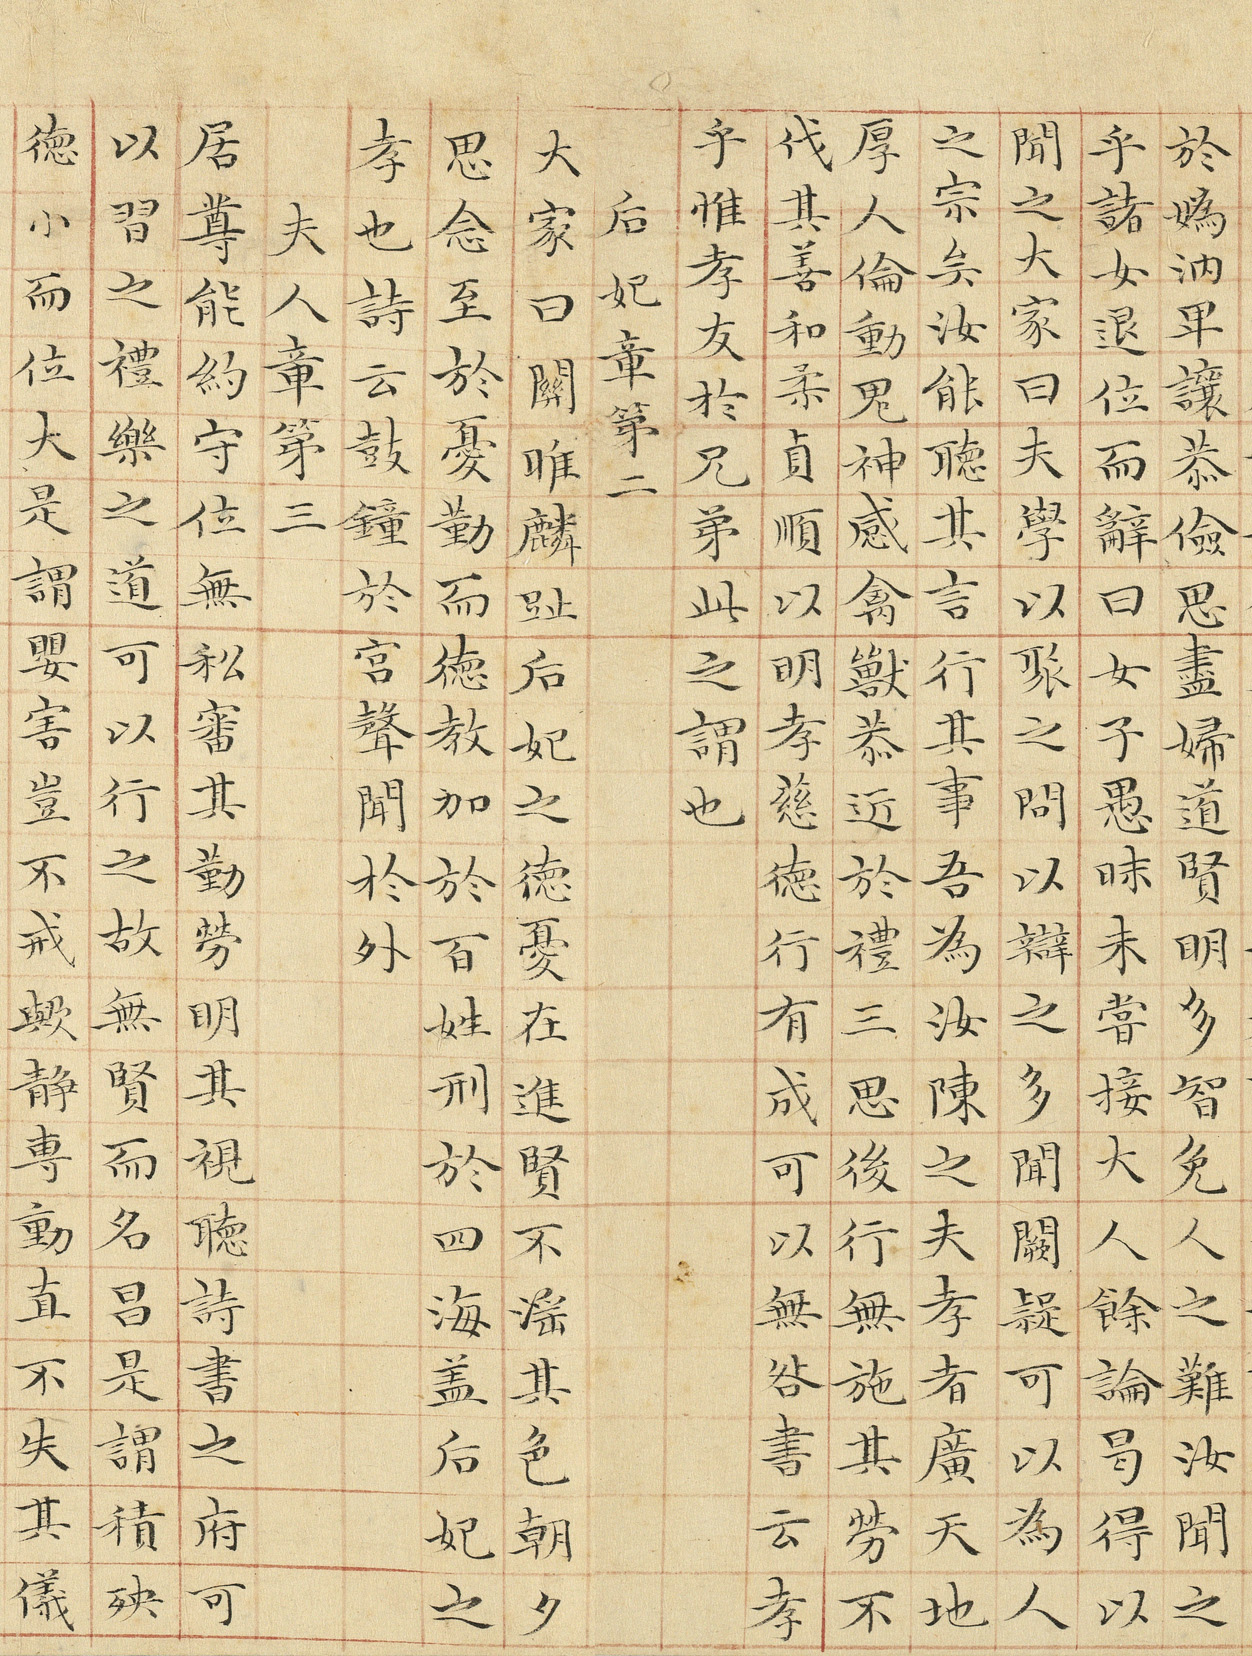 於嬀汭卑讓恭儉思盡婦道賢明多智免人之難汝聞之
乎諸女退位而辭曰女子愚昧未嘗接大人餘論曷得以
聞之大家曰夫學以聚之問以辯之多聞闕疑可以為人
之宗矣汝能聽其言行其事吾為汝陳之夫孝者廣天地
厚人倫動鬼神感禽獸恭近於禮三思後行無施其勞不
伐其善和柔貞順以明孝慈德行有成可以無咎書云孝
乎惟孝友於兄弟此之謂也
后妃章第二
大家曰關雎麟趾后妃之德憂在進賢不滛其色朝夕
思念至於憂勤而德教加於百姓刑於四海盖后妃之
孝也詩云鼓鐘於宮聲聞於外
夫人章第三
居尊能約守位無私審其勤勞明其視聽詩書之府可
以習之禮樂之道可以行之故無賢而名昌是謂積殃
德小而位大是謂嬰害豈不戒歟静専動直不失其儀